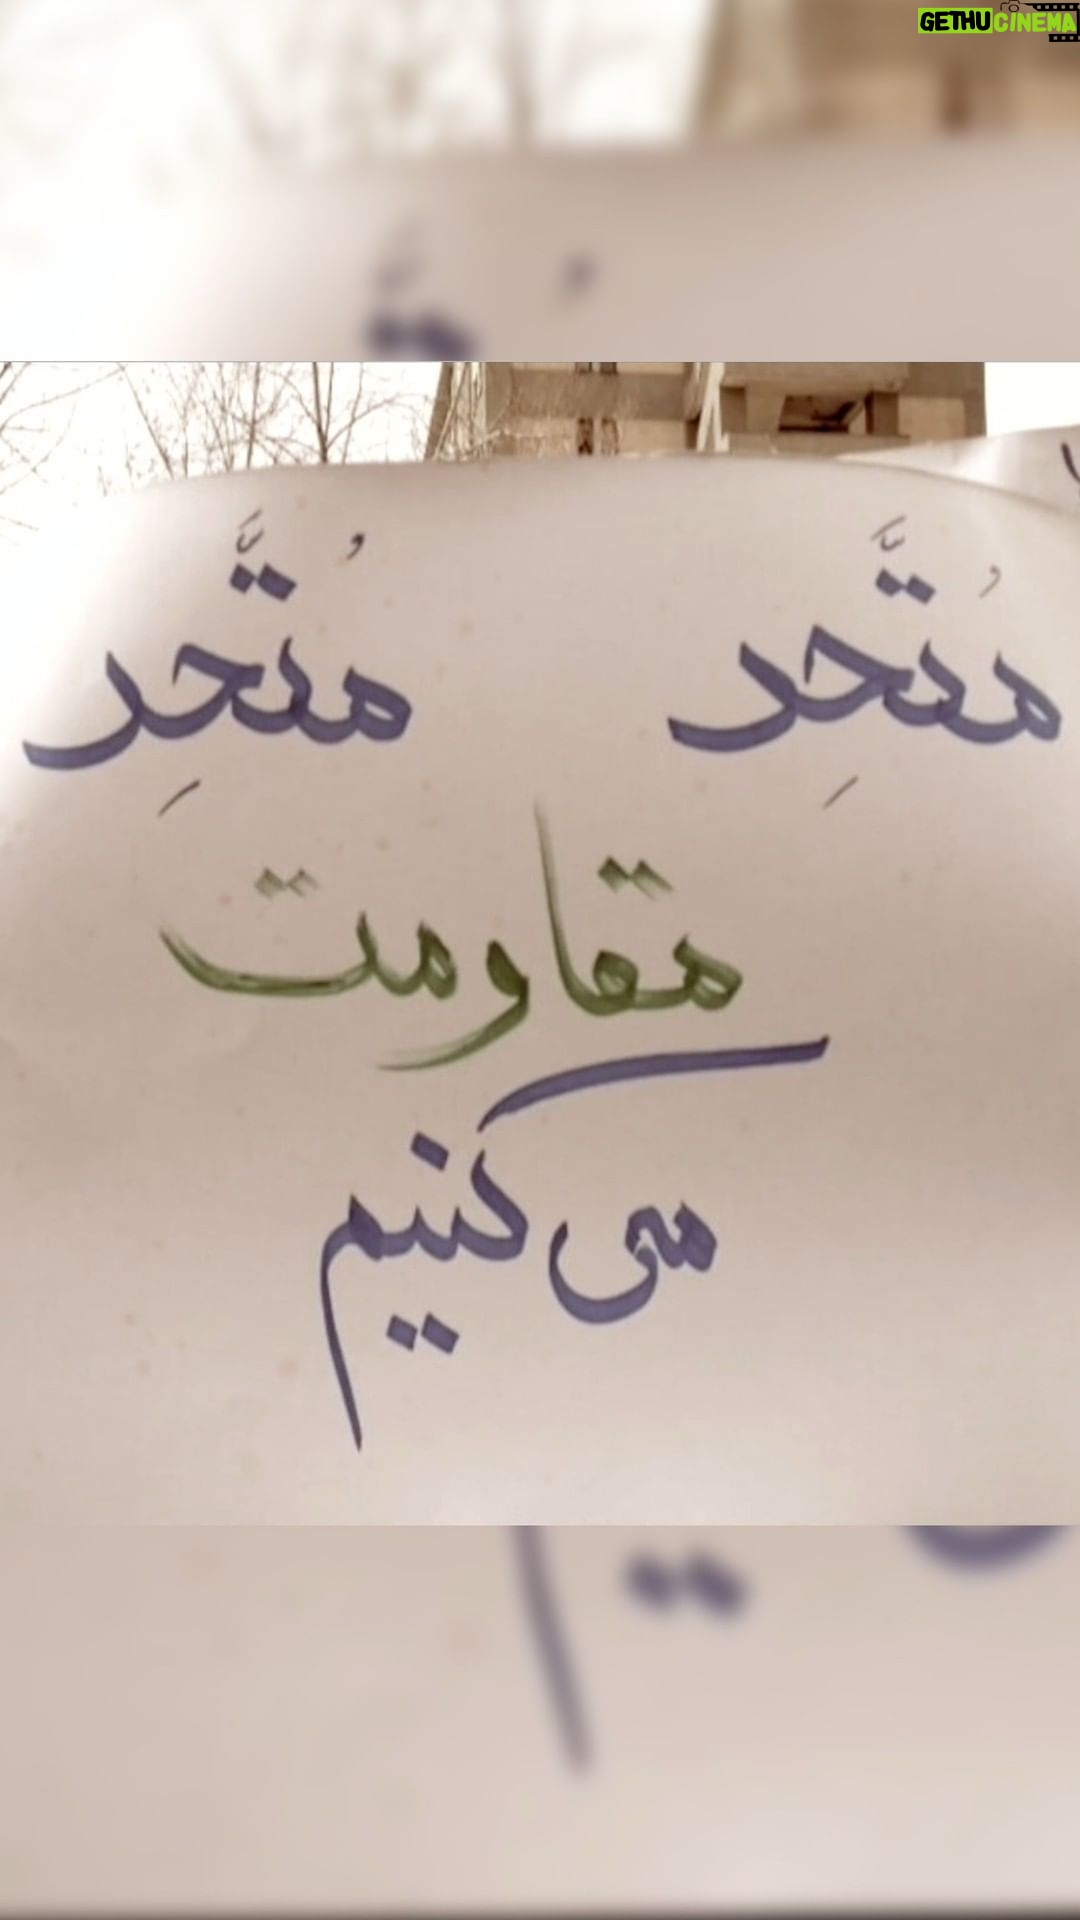 GETHUCINEMA
مُتَّحِد مُتَّحِد
مقاومت
می‌کنیم